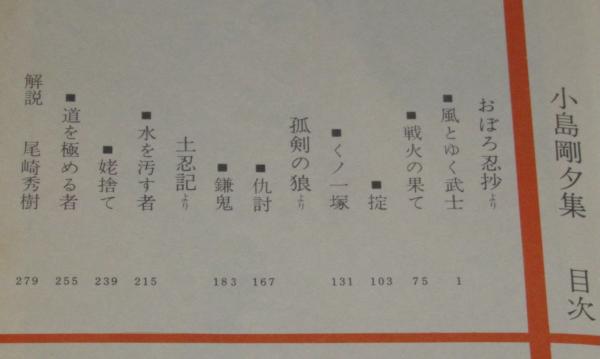 小島剛夕集 目次
おぼろ忍抄より
■風とゆく武士 1
■戦火の果て 75
■掟 103
■くノ一塚 131
孤剣の狼より
■仇討 167
■鎌鬼 183
土忍記より
■水を汚す者 215
■姥捨て 239
■道を極める者 255
解説 尾崎秀樹 279